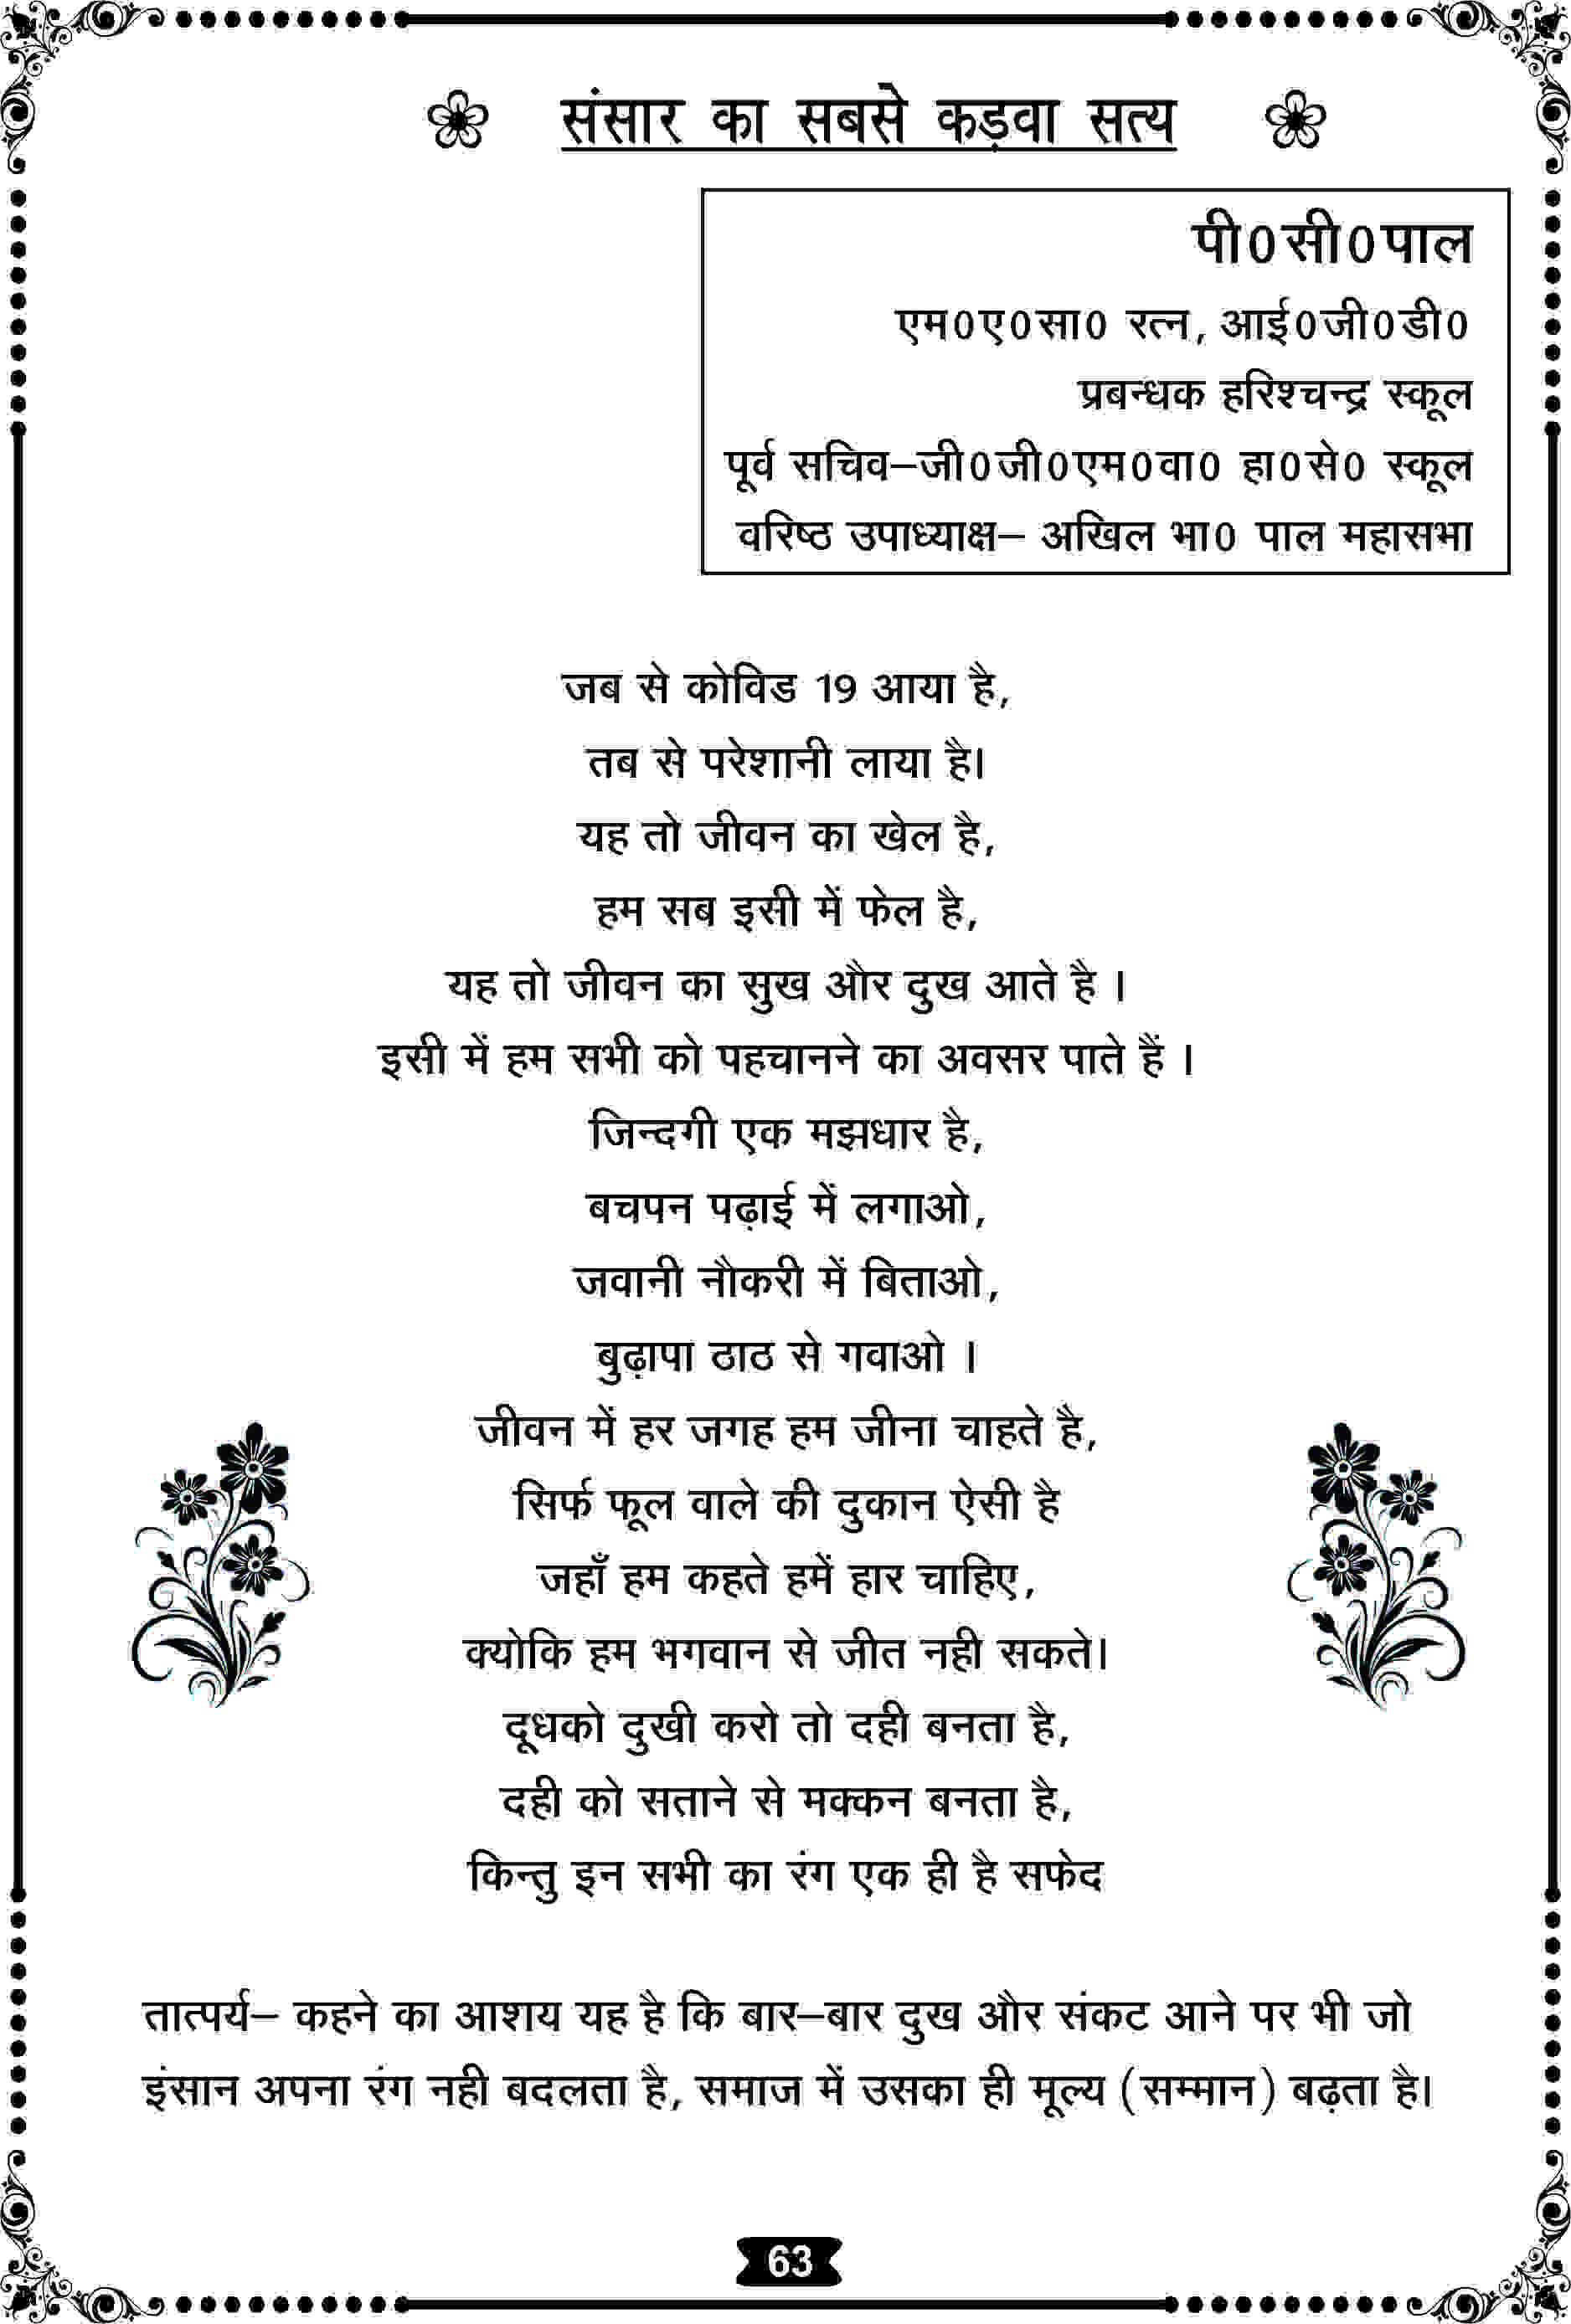 संसार का सबसे कड़वा सत्य
पी0सी0पाल
एम0ए0सा0 रत्न, आई0जी0डी0
प्रबन्धक हरिश्चन्द्र स्कूल
पूर्व सचिव–जी0जी0एम0वा0 हा0से0 स्कूल
वरिष्ठ उपाध्याक्ष– अखिल भा0 पाल महासभा
जब से कोविड 19 आया है,
तब से परेशानी लाया है।
यह तो जीवन का खेल है,
हम सब इसी में फेल है,
यह तो जीवन का सुख और दुख आते है ।
इसी में हम सभी को पहचानने का अवसर पाते हैं ।
जिन्दगी एक मझधार है,
बचपन पढ़ाई में लगाओ,
जवानी नौकरी में बिताओ,
बुढ़ापा ठाठ से गवाओ ।
जीवन में हर जगह हम जीना चाहते है,
सिर्फ फूल वाले की दुकान ऐसी है
जहाँ हम कहते हमें हार चाहिए,
क्योकि हम भगवान से जीत नही सकते।
दूधको दुखी करो तो दही बनता है,
दही को सताने से मक्कन बनता है,
किन्तु इन सभी का रंग एक ही है सफेद
तात्पर्य– कहने का आशय यह है कि बार–बार दुख और संकट आने पर भी जो
इंसान अपना रंग नही बदलता है, समाज में उसका ही मूल्य (सम्मान) बढ़ता है।
63